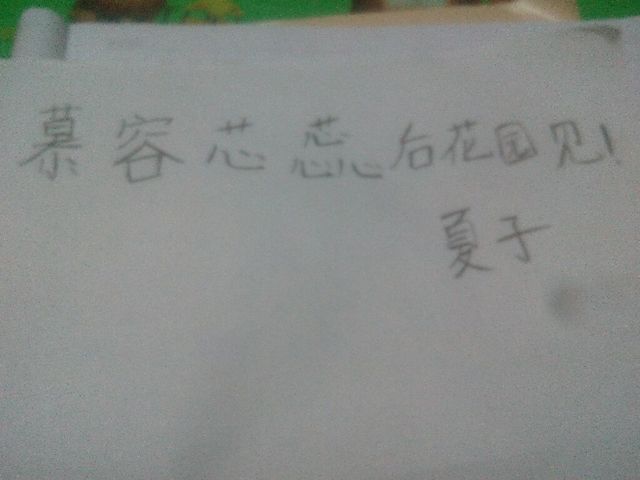 慕容芯蕊后花园见!
夏子